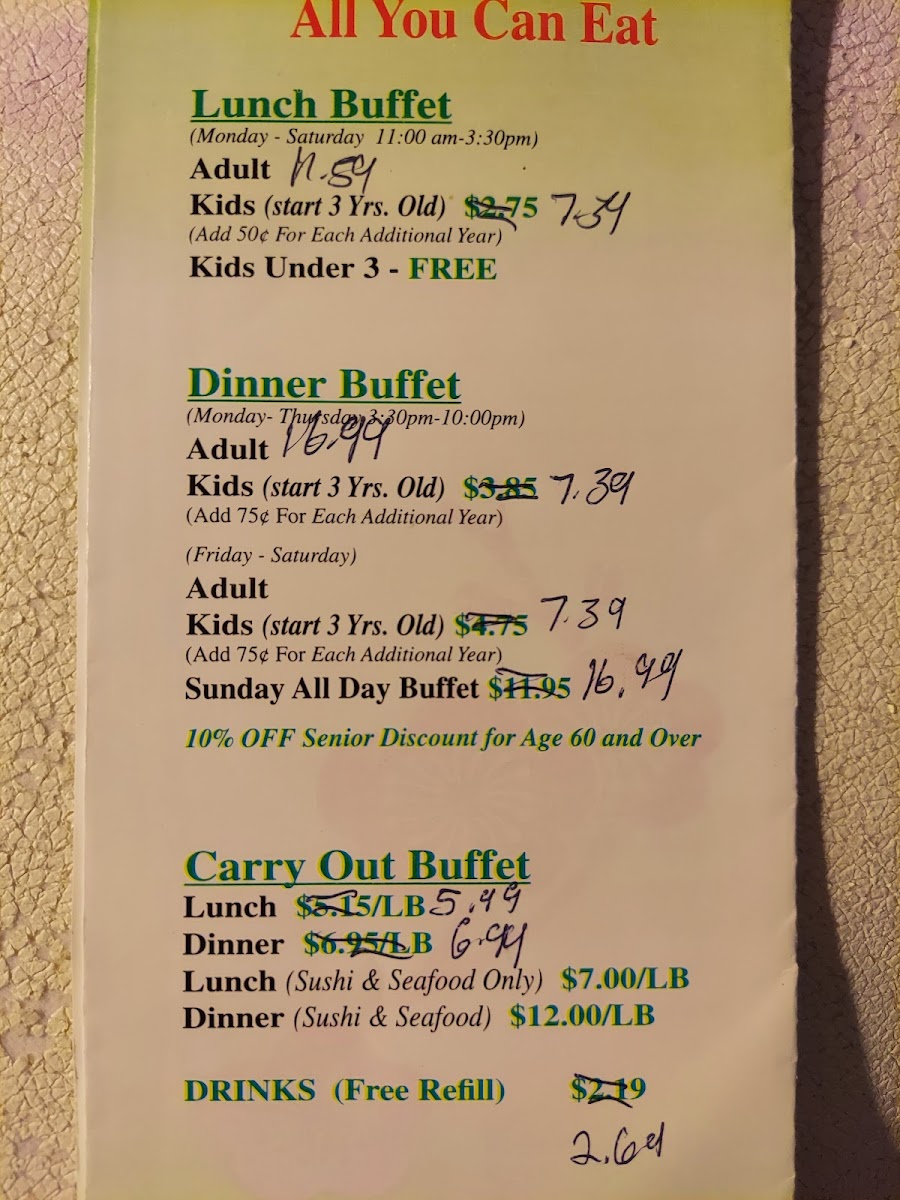 All You Can Eat
Lunch Buffet
(Monday - Saturday 11:00 am-3:30pm)
Adult 11.59
Kids (start 3 Yrs. Old) $2.75
(Add 50¢ For Each Additional Year)
Kids Under 3 - FREE
Dinner Buffet
(Monday- Thursday 3:30pm-10:00pm)
Adult 16.99
Kids (start 3 Yrs. Old) $3.85 7.39
(Add 75¢ For Each Additional Year)
(Friday - Saturday)
Adult
Kids (start 3 Yrs. Old) $4.75 7.39
(Add 75¢ For Each Additional Year)
Sunday All Day Buffet $11.95 16.99
10% OFF Senior Discount for Age 60 and Over
Carry Out Buffet
Lunch $5.15/LB 5.49
Dinner $6.95/LB 6.99
Lunch (Sushi & Seafood Only) $7.00/LB
Dinner (Sushi & Seafood) $12.00/LB
DRINKS (Free Refill) $2.19
2.69